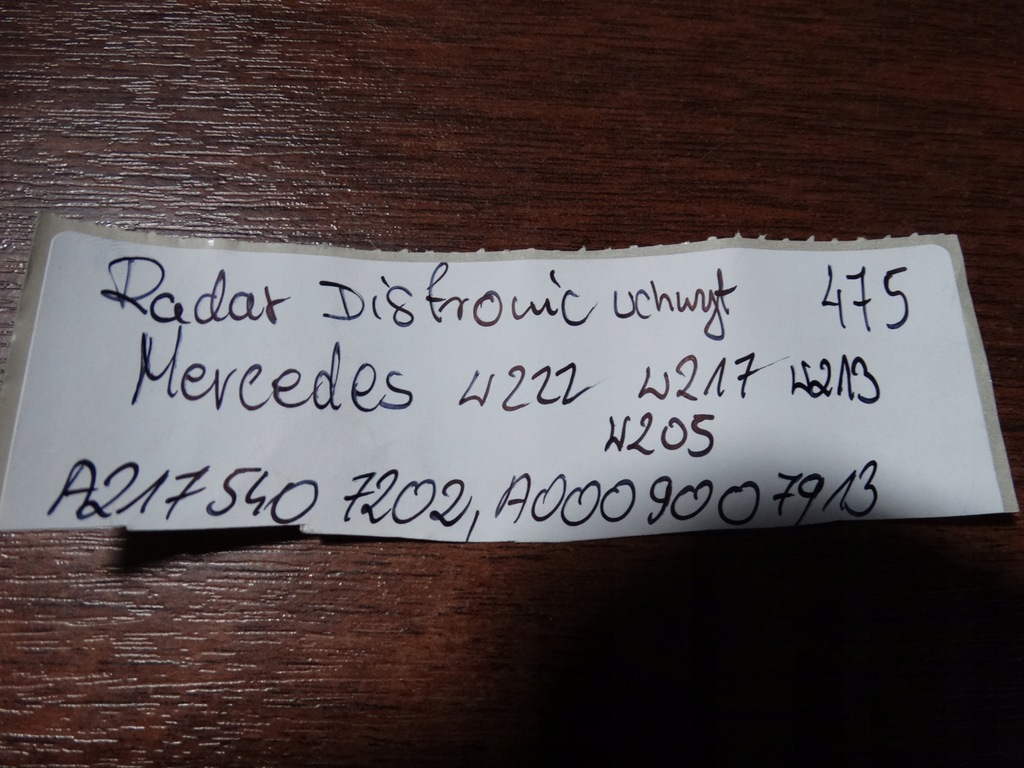 Radar Distronic uchwyt 475
Mercedes W222 W217 W213
W205
A217 540 7202, A000 900 7913